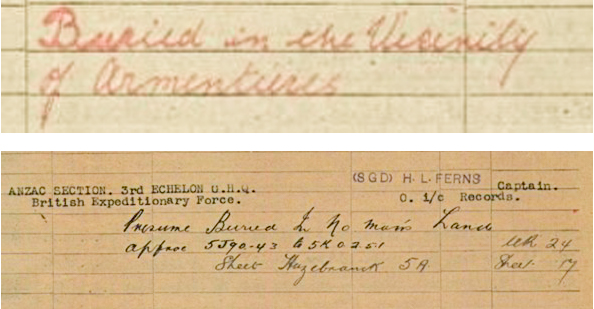 Buried in the Vicinity
of Armentieres
(SGD) H. L. FERNS Captain.
ANZAC SECTION. 3rd ECHELON G.H.Q.
British Expeditionary Force. O. i/c Records.
Presume Buried In No Man's Land
approx 5J90.43 to 5K0.2.51 24
Sheet Hazebrouck 5A 17